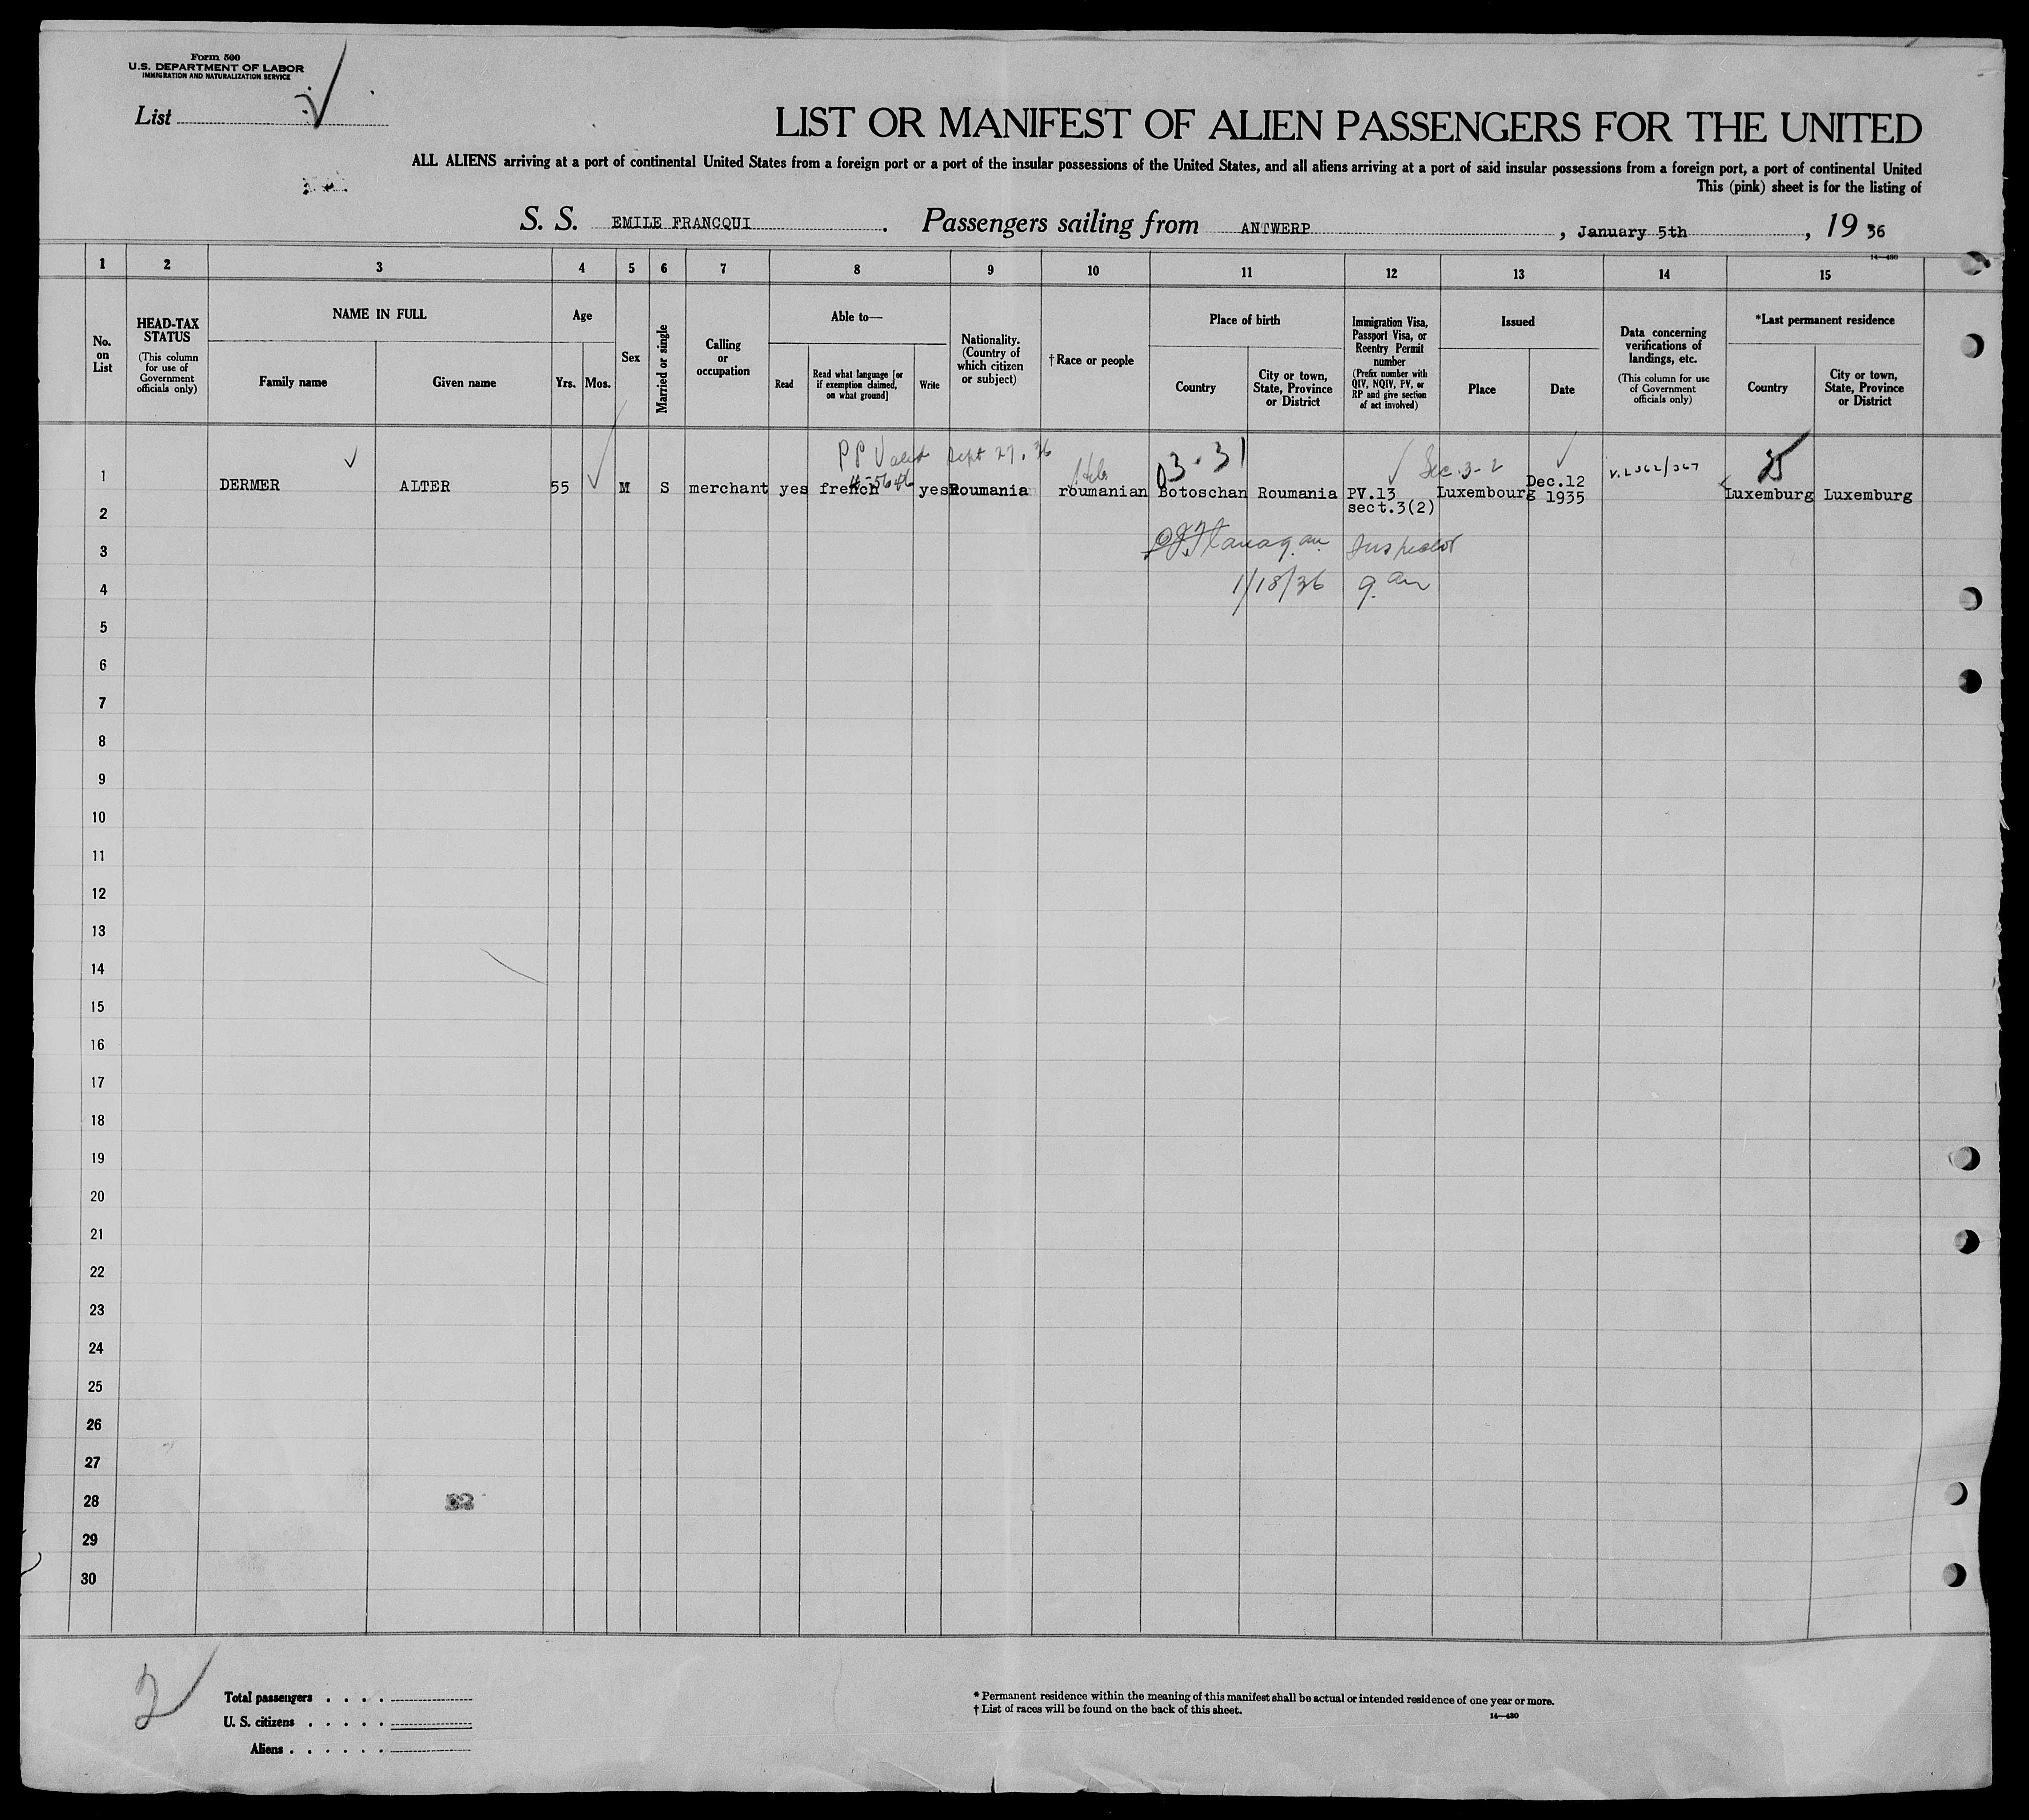 Form 500
U.S. DEPARTMENT OF LABOR
IMMIGRATION AND NATURALIZATION SERVICE
List
LIST OR MANIFEST OF ALIEN PASSENGERS FOR THE UNITED
ALL ALIENS arriving at a port of continental United States from a foreign port or a port of the insular possessions of the United States, and all aliens arriving at a port of said insular possessions from a foreign port, a port of continental United
This (pink) sheet is for the listing of
S. S. EMILE FRANCQUI. Passengers sailing from ANTWERP, January 5th, 19 36
14—430
1 2 3 4 5 6 7 8 9 10 11 12 13 14 15
No. on List
HEAD-TAX STATUS
(This column for use of Government officials only)
NAME IN FULL
Family name
Given name
Age
Yrs.
Mos.
Sex
Married or single
Calling or occupation
Able to—
Read
Read what language [or if exemption claimed, on what ground]
Write
Nationality. (Country of which citizen or subject)
†Race or people
Place of birth
Country
City or town, State, Province or District
Immigration Visa, Passport Visa, or Reentry Permit number
(Prefix number with QIV, NQIV, PV, or RP and give section of act involved)
Issued
Place
Date
Data concerning verifications of landings, etc.
(This column for use of Government officials only)
*Last permanent residence
Country
City or town, State, Province or District
PP Valid Sept 27. 36
Heb
03-31
Sec. 3-2
V.L 362/367
1 DERMER ALTER 55 M S merchant yes french yes Roumania roumanian Botoschan Roumania PV.13 sect.3(2) Luxembourg Dec.12 1935 Luxemburg Luxemburg
2
3
Flanagan Inspector
4
1/18/36 9 am
5
6
7
8
9
10
11
12
13
14
15
16
17
18
19
20
21
22
23
24
25
26
27
28
29
30
2
Total passengers . . . .
U. S. citizens . . . . .
Aliens . . . . . .
* Permanent residence within the meaning of this manifest shall be actual or intended residence of one year or more.
† List of races will be found on the back of this sheet.
14—430